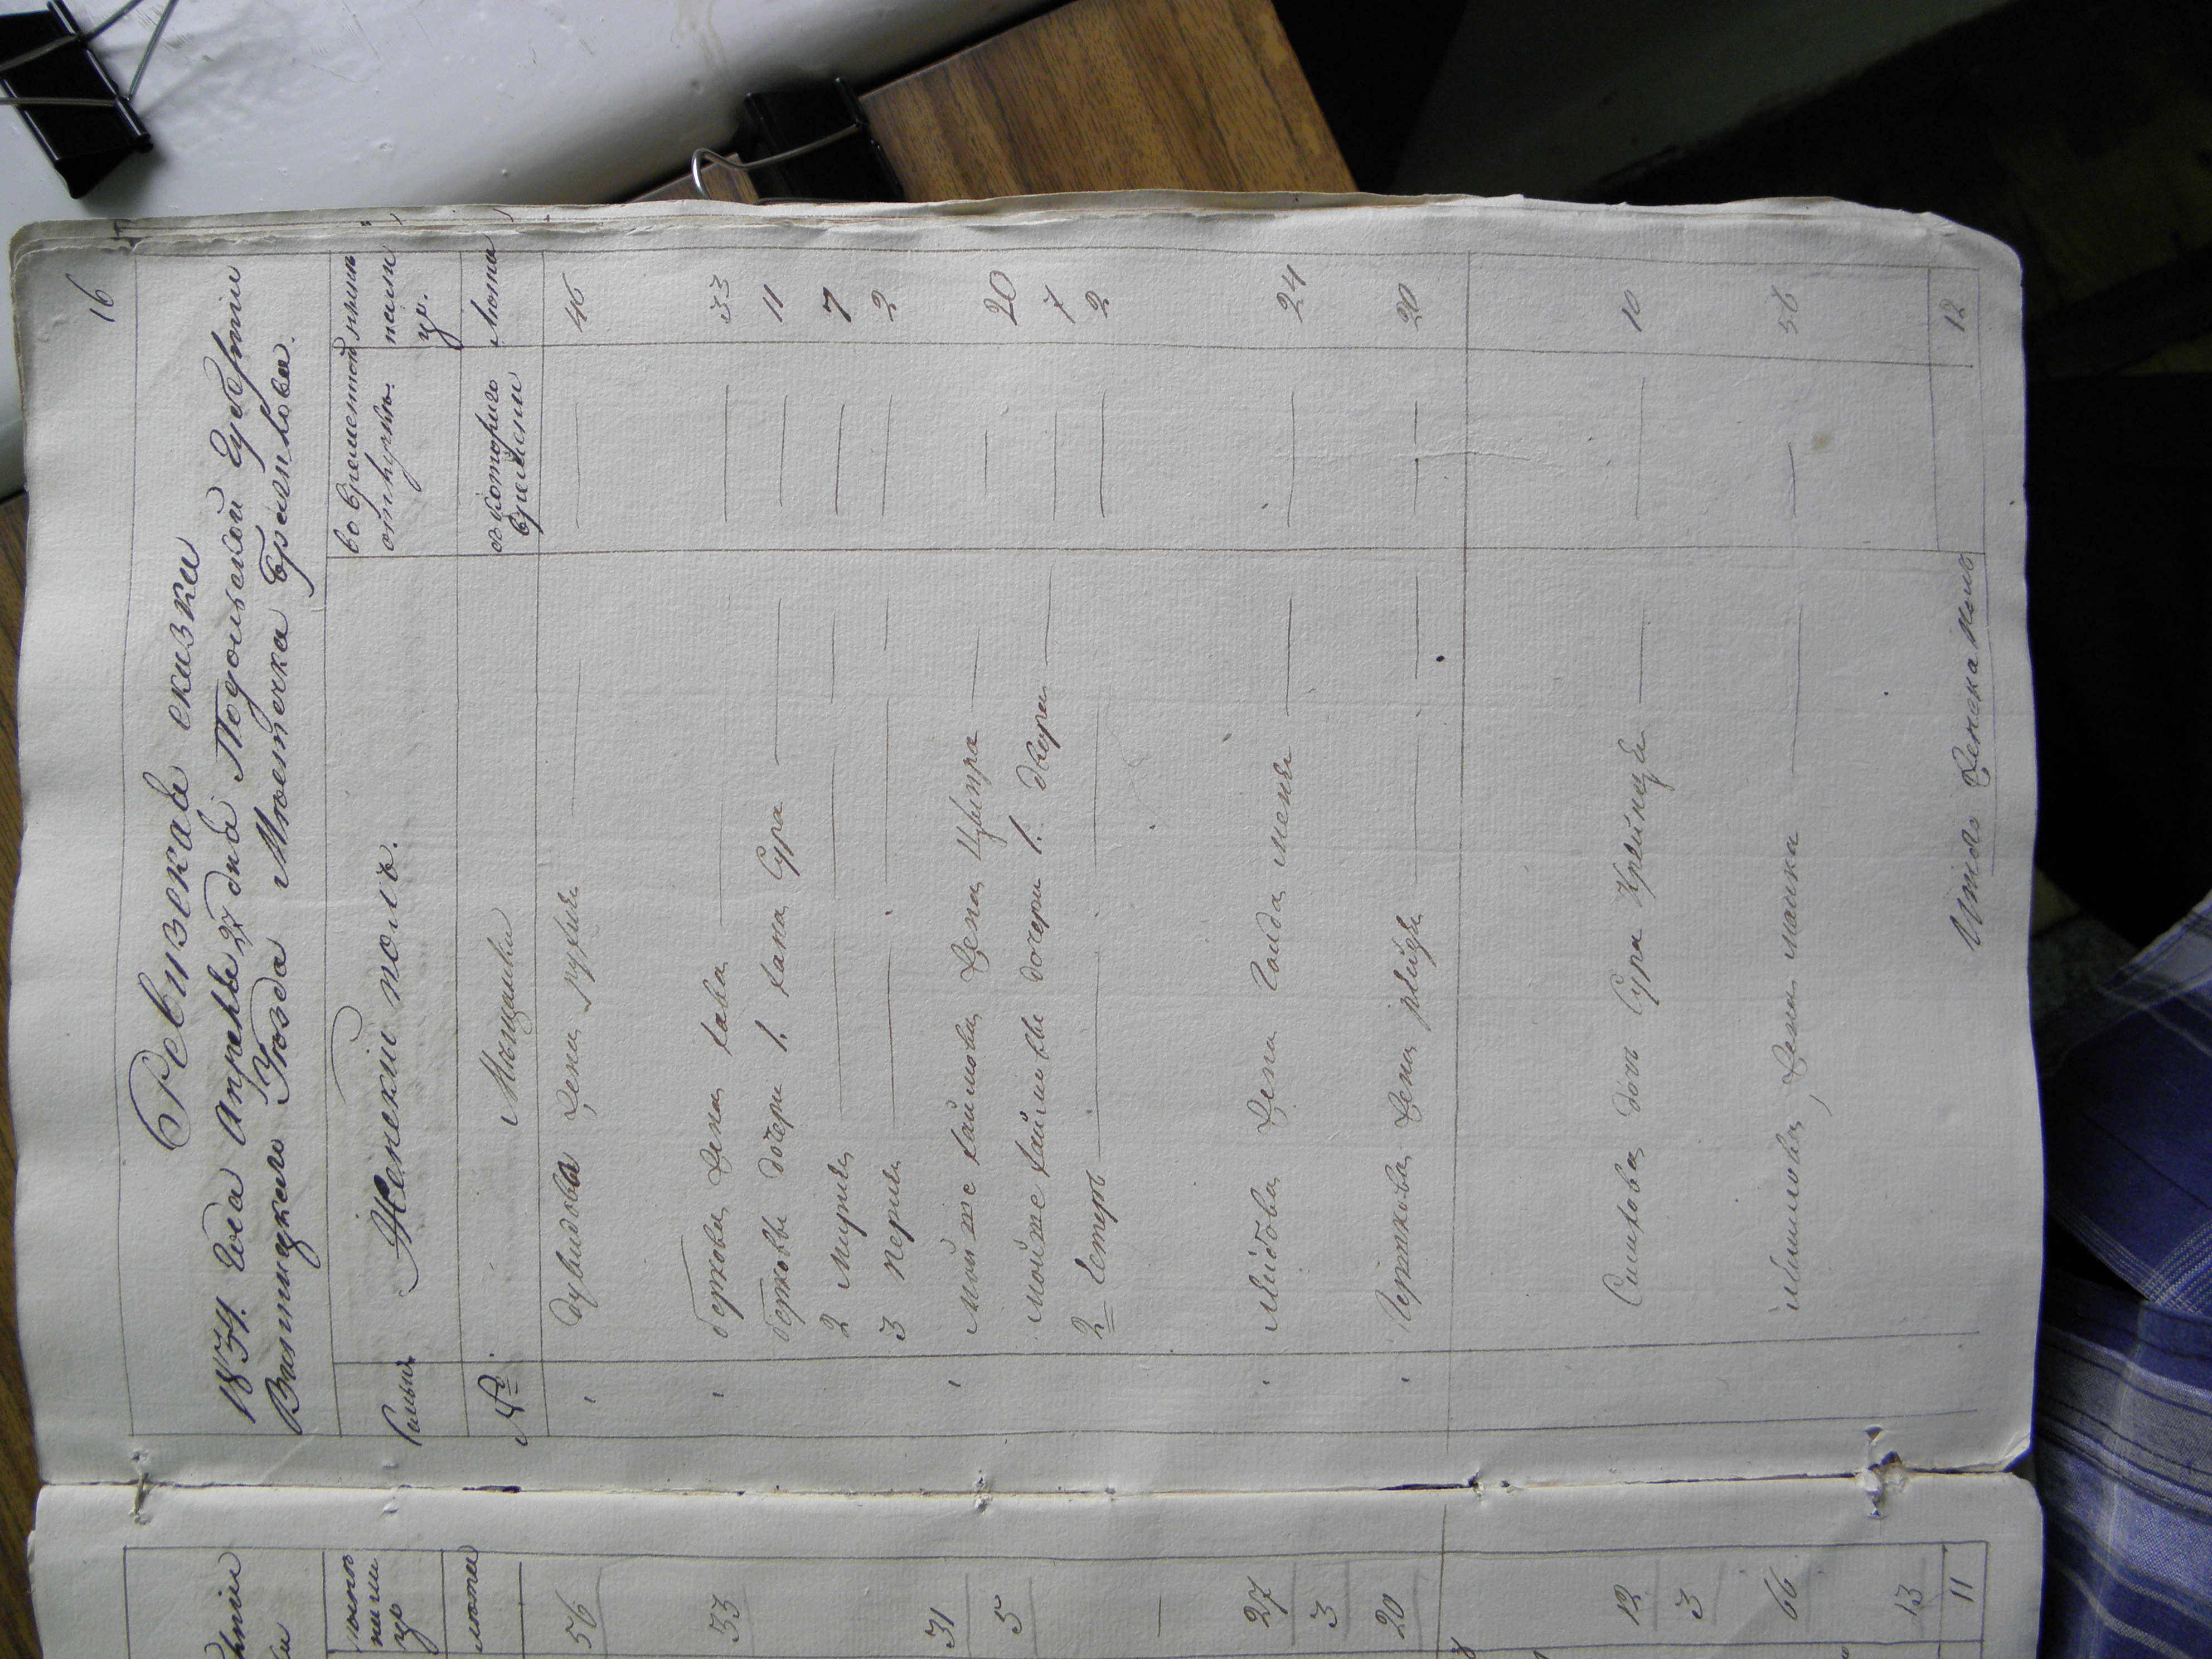 16
Ревизская сказка
1834. Года Апреля 27 дня Подольской Губернии
Винницкого Уезда Местечка Браилова.
Семьи
Женский полъ.
во временной
отлучке.
ныне
на лицо
№
Мещанки
с котораго
времени
Лета
Дувидова жена Рухля 46
Беркова жена Хава 33
Берковы дочери 1. Хана Сура 11
2 Мирля 7
3 Перля 2
Мошке Хаимова жена Цвитра 20
Мошке Хаимовы дочери 1. Двора 7
2 Естеръ 2
Лейбова жена Голда Меня 24
Гершкова жена Рейзя 20
Симхова дочь Сура Крейнця 10
жена Малка 56
Итого женска полъ 12
56
33
31
5
27
3
20
12
3
66
13
11